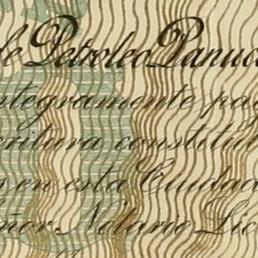 de Petroleo Panuco
ntegramente pag
critura constitut
s en esta Ciudad
eñor Notario Lic